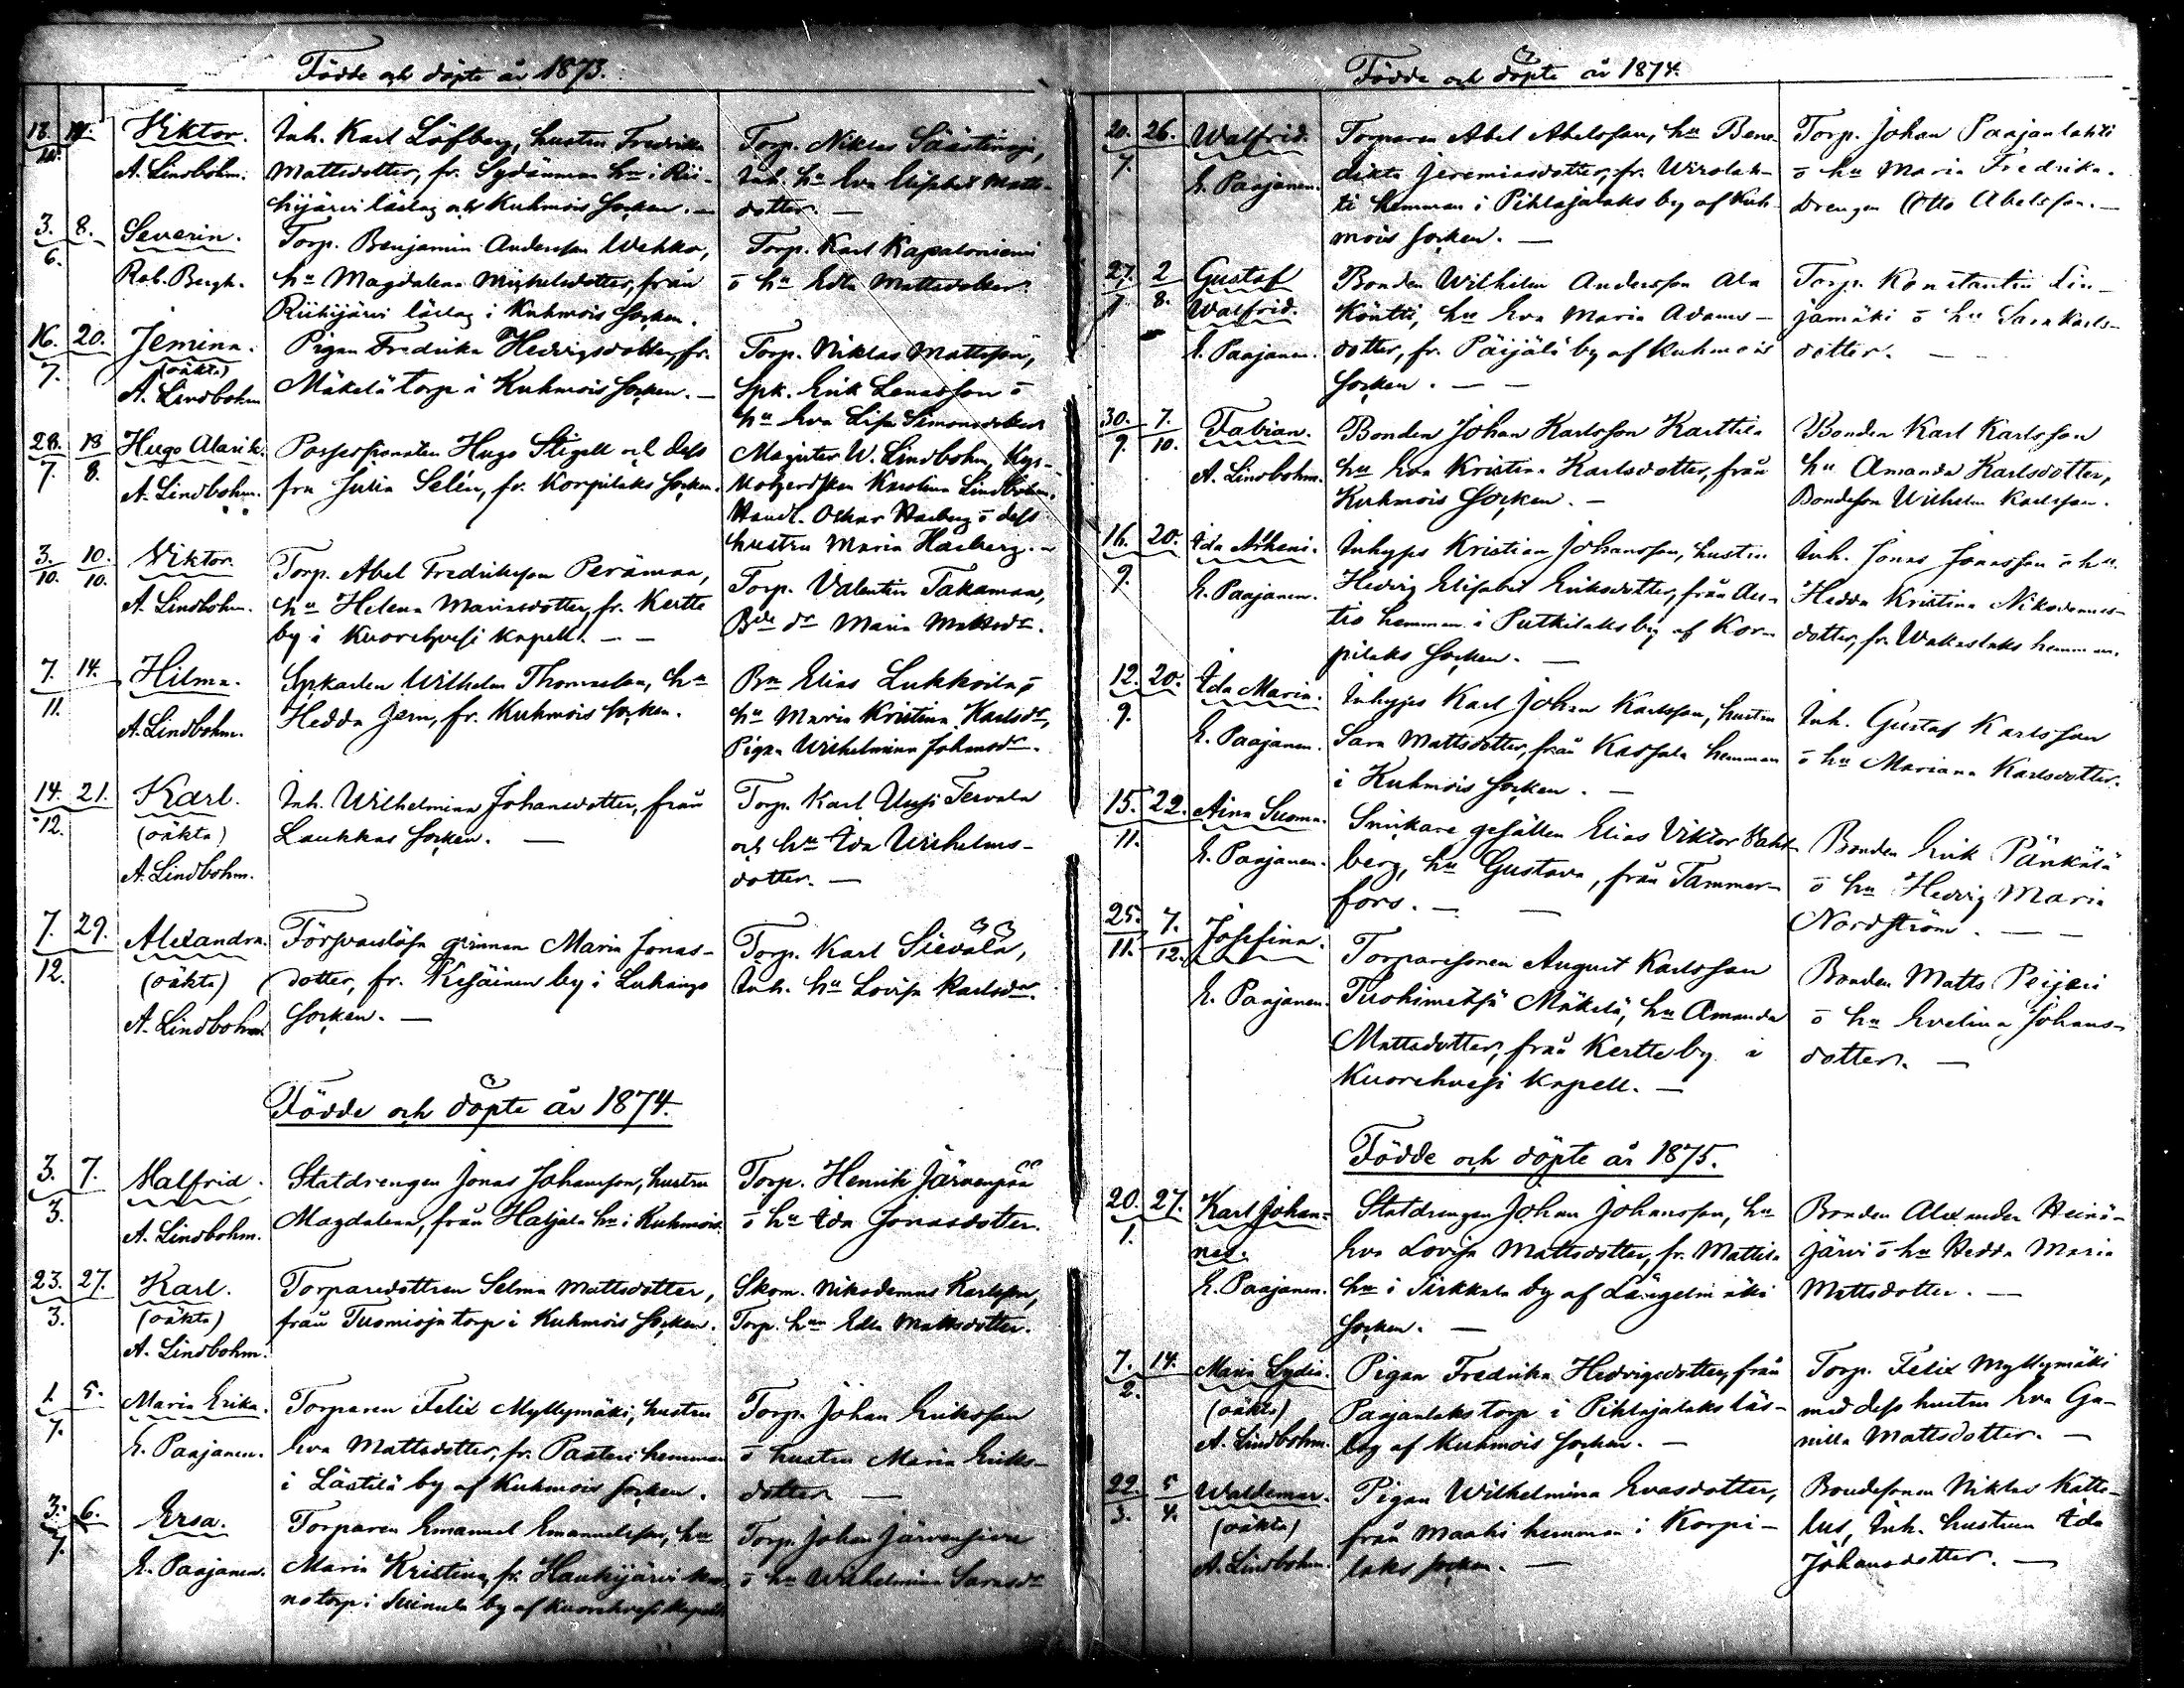 Födde och döpte år 1873.
18. 19.
10.
Viktor.
A. Lindbohm.
Inh. Karl Löfberg, hustru Fredrika
Mattsdotter, fr. Sydänmaa hn i Rii-
hijärvi läslag och Kuhmois socken. —
Torp. Niklas
Inh. hu Eva Elisabet Matts-
dotter. —
3. 8.
6.
Severin.
Rob. Bergh.
Torp. Benjamin Andersson Wehko,
hu Magdalena Michelsdotter, från
Riihijärvi läslag i Kuhmois socken.
Torp. Karl Kapaloniemi
o hu Edla Mattsdotter.
16. 20.
7.
Jemina.
(oäkta)
A. Lindbohm
Pigan Fredrika Hedvigsdotter, fr.
Mäkelä torp i Kuhmois socken. —
Torp. Niklas Mattsson,
Spk. Erik Lenasson o
hu Eva Lisa Simonsdotter
28. 13
7. 8.
Hugo Alarik.
A. Lindbohm.
Possessionaten Hugo Stigell och dess
fru Julia Selén, fr. Korpilaks socken.
Magister W. Lindbohm,
Karolina Lindbohm.
Handl. Oskar Harberg o dess
hustru Maria Harberg. —
3. 10.
10. 10.
Viktor.
A. Lindbohm.
Torp. Abel Fredriksson Perämaa,
hu Helena Mariasdotter, fr. Kertte
by i Kuorehvesi kapell. — —
Torp. Valentin Takamaa,
Bde dr Maria Mattsdr.
7. 14.
11.
Hilma.
A. Lindbohm.
Spkarlen Wilhelm Thomasson, hu
Hedda Jern, fr. Kuhmois socken.
Bn Elias Lukkoila, o
hu Maria Kristina Karlsdr,
Pigan Wilhelmina Johansdr.
14. 21.
12.
Karl.
(oäkta)
A. Lindbohm.
Inh. Wilhelmina Johansdotter, från
Laukkas socken. —
Torp. Karl Uusi Tervala
och hu Ida Wilhelms-
dotter. —
7. 29.
12.
Alexandra.
(oäkta)
A. Lindbohm.
Försvarslösa qvinnan Maria Jonas-
dotter, fr. Kesäinen by i Luhango
socken. —
Torp. Karl Sievälä,
Inh. hu Lovisa Karlsdr.
Födde och döpte år 1874.
3. 7.
3.
Malfrid.
A. Lindbohm.
Statdrengen Jonas Johansson, hustru
Magdalena, från Haljala hn i Kuhmois.
Torp. Henrik Järvenpää
o hu Ida Jonasdotter.
23. 27.
3.
Karl.
(oäkta)
A. Lindbohm.
Torparedottren Selma Mattsdotter,
från Tuomioja torp i Kuhmois socken.
Skom. Nikodemus Karlsson,
Torp. hun Edla Mattsdotter.
1. 5.
7.
Maria Erika.
E. Paajanen.
Torparen Felix Myllymäki, hustru
Eva Mattsdotter, fr. Pasteri hemman
i Lästilä by af Kuhmois socken.
Torp. Johan Eriksson
o hustru Maria Eriks-
dotter —
3. 6.
7.
Ersa.
E. Paajanen.
Torparen Emanuel Emanuelsson, hu
Maria Kristina, fr. Haukijärvi kro-
no torp i Suinula by af Kuorehvesi kapell
Torp. Johan Järvensivu
o hu Wilhelmina Sarasdr
Födde och döpte år 1874.
20. 26.
7.
Walfrid.
E. Paajanen.
Torparen Abel Abelsson, hu Bene-
dikta Jeremiasdotter, fr. Wirolah-
ti hemman i Pihlajalaks by af Kuh-
mois socken. —
Torp. Johan Paajanlahti
o hu Maria Fredrika.
Drengen Otto Abelsson. —
27. 2
7. 8.
Gustaf
Walfrid.
E. Paajanen.
Bonden Wilhelm Andersson Ala
Köntti, hu Eva Maria Adams-
dotter, fr. Päijälä by af Kuhmois
socken. — —
Torp. Konstantin Lin-
jamäki o hu Sara Karls-
dotter. —
30. 7.
9. 10.
Fabian.
A. Lindbohm.
Bonden Johan Karlsson Karttila
hu Eva Kristina Karlsdotter, från
Kuhmois socken. —
Bonden Karl Karlsson
hu Amanda Karlsdotter,
Bondeson Wilhelm Karlsson.
16. 20.
9.
Ida
E. Paajanen.
Inhyses Kristian Johansson, hustru
Hedvig Elisabet Eriksdotter, från Au-
tio hemman i Putkilaks by af Kor-
pilaks socken. —
Inh. Jonas Jonasson o hu
Hedda Kristina Nikodemus-
dotter, fr. hemman.
12. 20.
9.
Ida Maria.
E. Paajanen.
Inhyses Karl Johan Karlsson, hustru
Sara Mattsdotter, från Kassala hemman
i Kuhmois socken. —
Inh. Gustaf Karlsson
o hu Mariana Karlsdotter.
15. 22.
11.
Aina Suoma.
E. Paajanen.
Snickare gesällen Elias Viktor
berg, hu Gustava, från Tammer-
fors. — —
Bonden Erik Pänkälä
o hu Hedvig Maria
Nordström. — —
25. 7.
11. 12.
Josefina.
E. Paajanen.
Torparesonen August Karlsson
Tuohimetsä Mäkelä, hu Amanda
Mattsdotter, från Kertte by i
Kuorehvesi kapell. —
Bonden Matts Peijari
o hu Evelina Johans-
dotter. —
Födde och döpte år 1875.
20. 27.
1.
Karl Johan-
nes.
E. Paajanen.
Statdrengen Johan Johansson, hu
Eva Lovisa Mattsdotter, fr. Mattila
hn i Sirkkala by af Längelmäki
socken. —
Bonden Alexander Heinä-
järvi o hu Hedda Maria
Mattsdotter. —
7. 14.
2.
Maria Lydia.
(oäkta)
A. Lindbohm.
Pigan Fredrika Hedvigsdotter, från
Paajanlaks torp i Pihlajalaks läs-
lag af Kuhmois socken. —
Torp. Felix Myllymäki
med dess hustru Eva Gu-
nilla Mattsdotter. —
22. 5
3. 4.
Waldemar.
(oäkta)
A. Lindbohm.
Pigan Wilhelmina Evasdotter,
från Maahi hemman i Korpi-
laks socken. —
Bondesonen Niklas Katte-
lus, Inh. hustrun Ida
Johansdotter. —